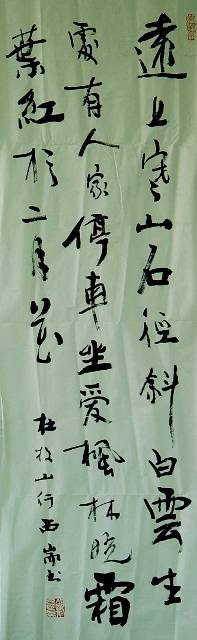 遠上寒山石徑斜白雲生
處有人家停車坐愛楓林晚霜
葉紅於二月花
杜牧山行西嵩书